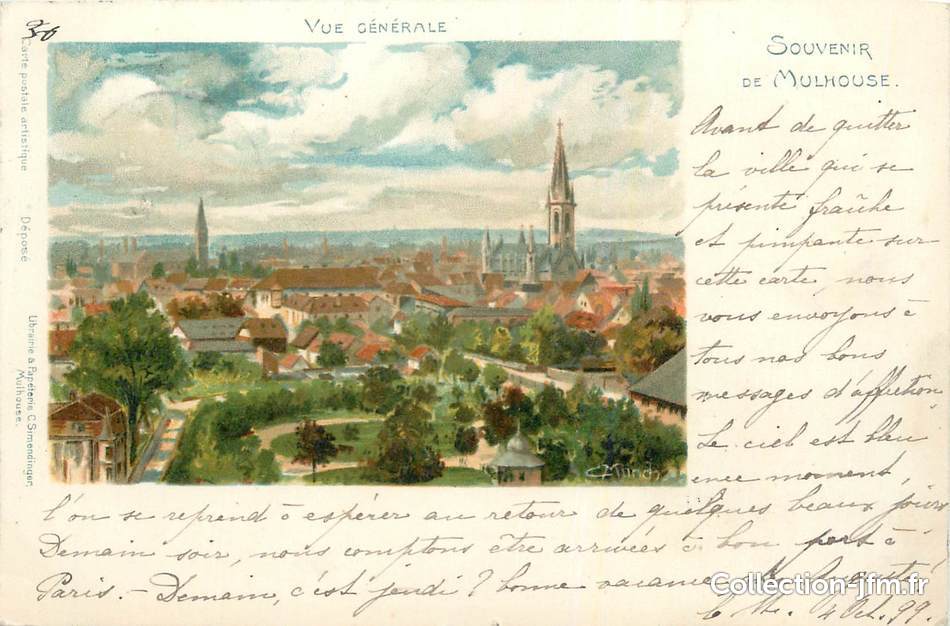 20
VUE GÉNÉRALE
SOUVENIR
DE MULHOUSE.
Carte postale artistique Déposé
Librairie & Papéterie C. Simendinger,
Mulhouse.
C Münch
Avant de quitter
la ville qui se
présente fraîche
et pimpante sur
cette carte, nous
vous envoyons à
tous nos bons
messages d'affection,
Le ciel est bleu
en ce moment,
l'on se reprend à espérer au retour de quelques beaux jours
Demain soir, nous comptons être arrivées à bon port à
Paris. - Demain, c'est jeudi? bonne vacance
4 Oct. 99.
Collection-jfm.fr